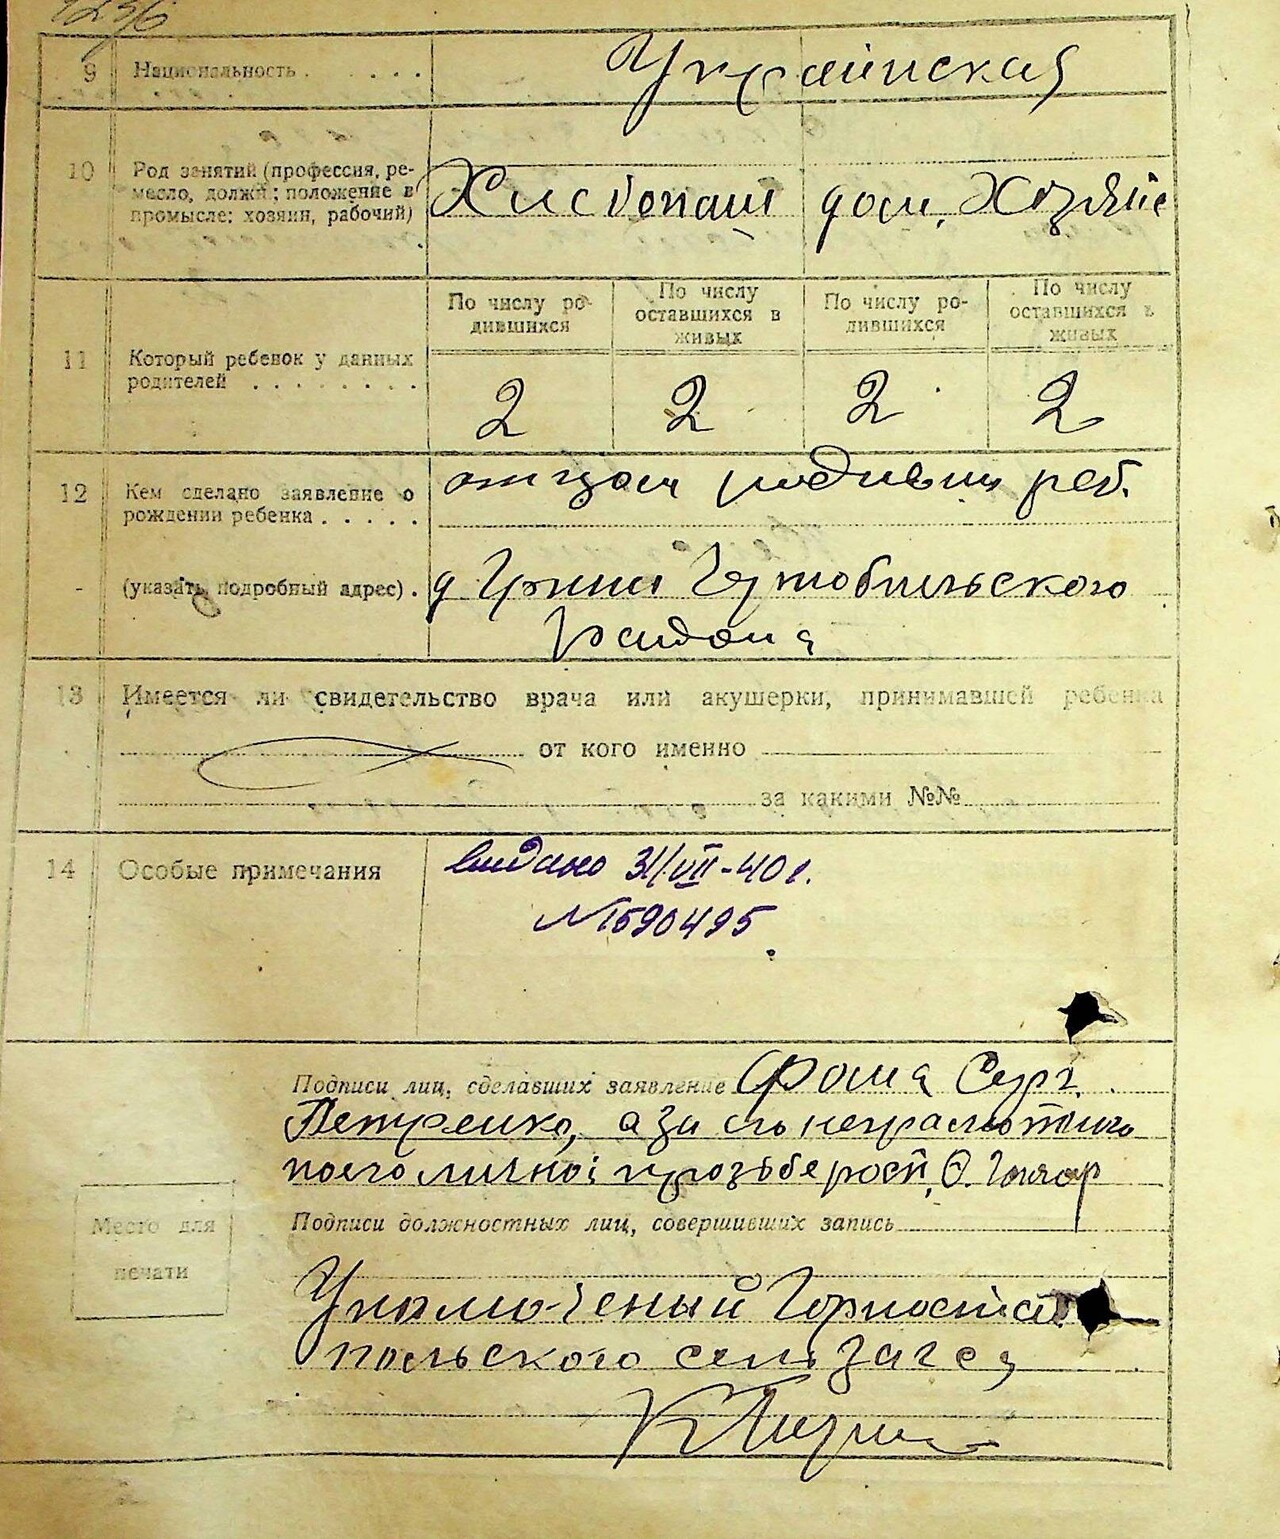 9 Национальность Украинская
10 Род занятий (профессия, ре-
месло, должн.; положение в
промысле: хозяин, рабочий)
Хлебопаш дом. Хозяйс
По числу ро-
дившихся
По числу
оставшихся в
живых
По числу ро-
дившихся
По числу
оставшихся в
живых
11 Который ребенок у данных
родителей
2 2 2 2
12 Кем сделано заявление о
рождении ребенка
отцом родивш реб.
(указать подробный адрес).
д Чернобыльского
района
13 Имеется ли свидетельство врача или акушерки, принимавшей ребенка
от кого именно
за какими №№
14 Особые примечания
видано 31/VII-40 г.
№1590495
Подписи лиц, сделавших заявление Фома Серг.
Петренко, а за его неграмотного
по его личной прозьбе росп. О. Гончар
Подписи должностных лиц, совершивших запись
Место для
печати
Уполмоченый Горностай
польского сельзагса